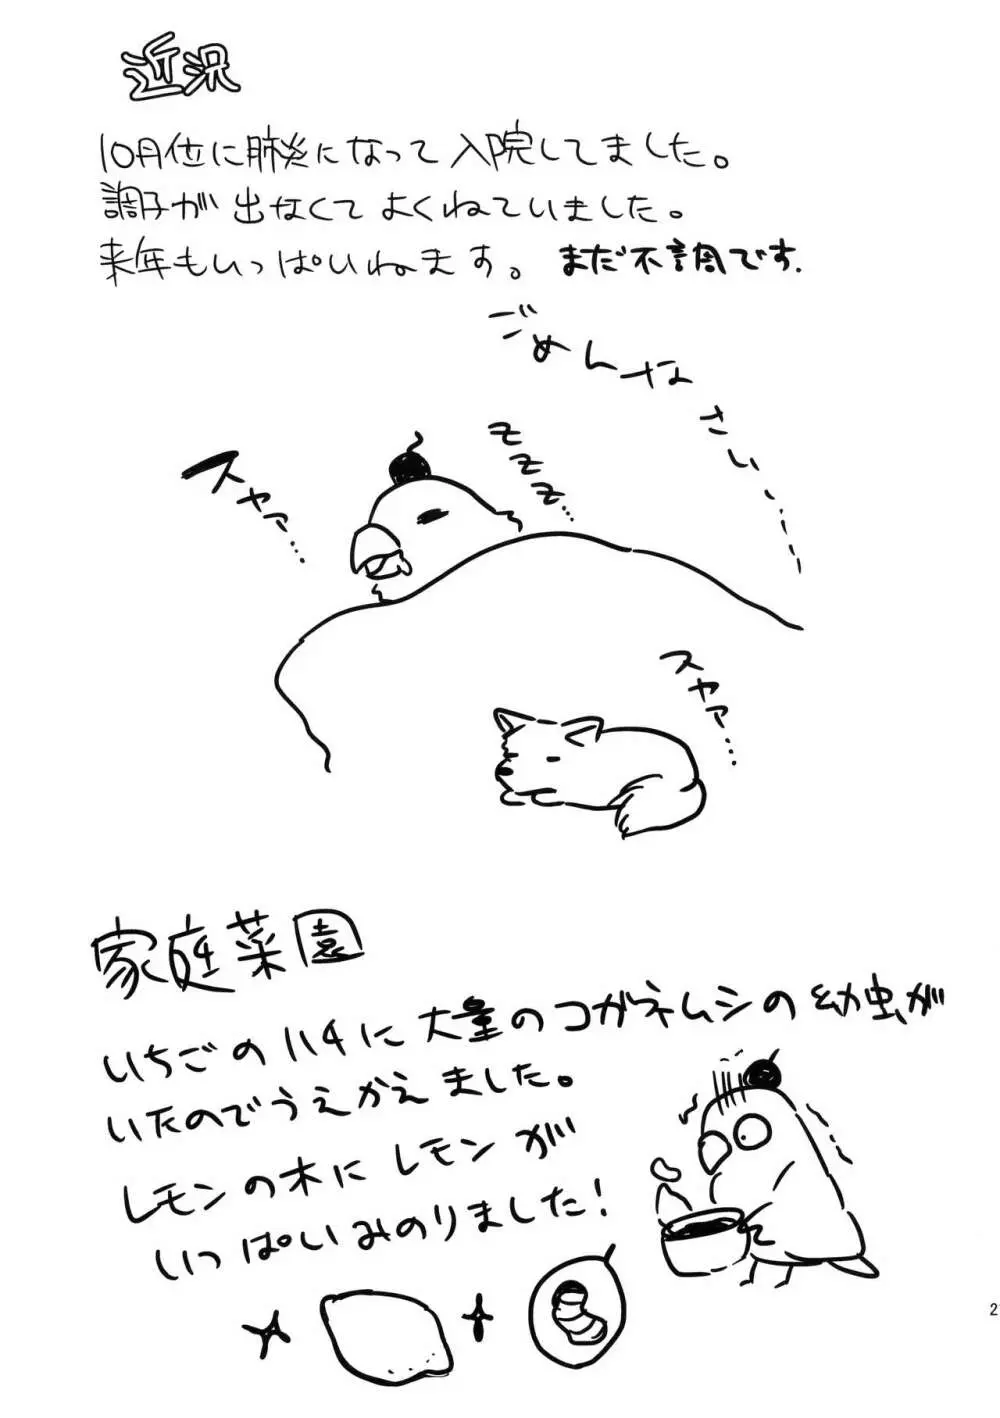 近況
10月位に肺炎になって入院してました。
調子が出なくてよくねていました。
来年もいっぱいねます。まだ不調です.
ごめんなさい……
ズズズ…
スヤァ…
スヤァ…
家庭菜園
いちごのハチに大量のコガネムシの幼虫が
いたのでうえかえました。
レモンの木にレモンが
いっぱいみのりました!
2